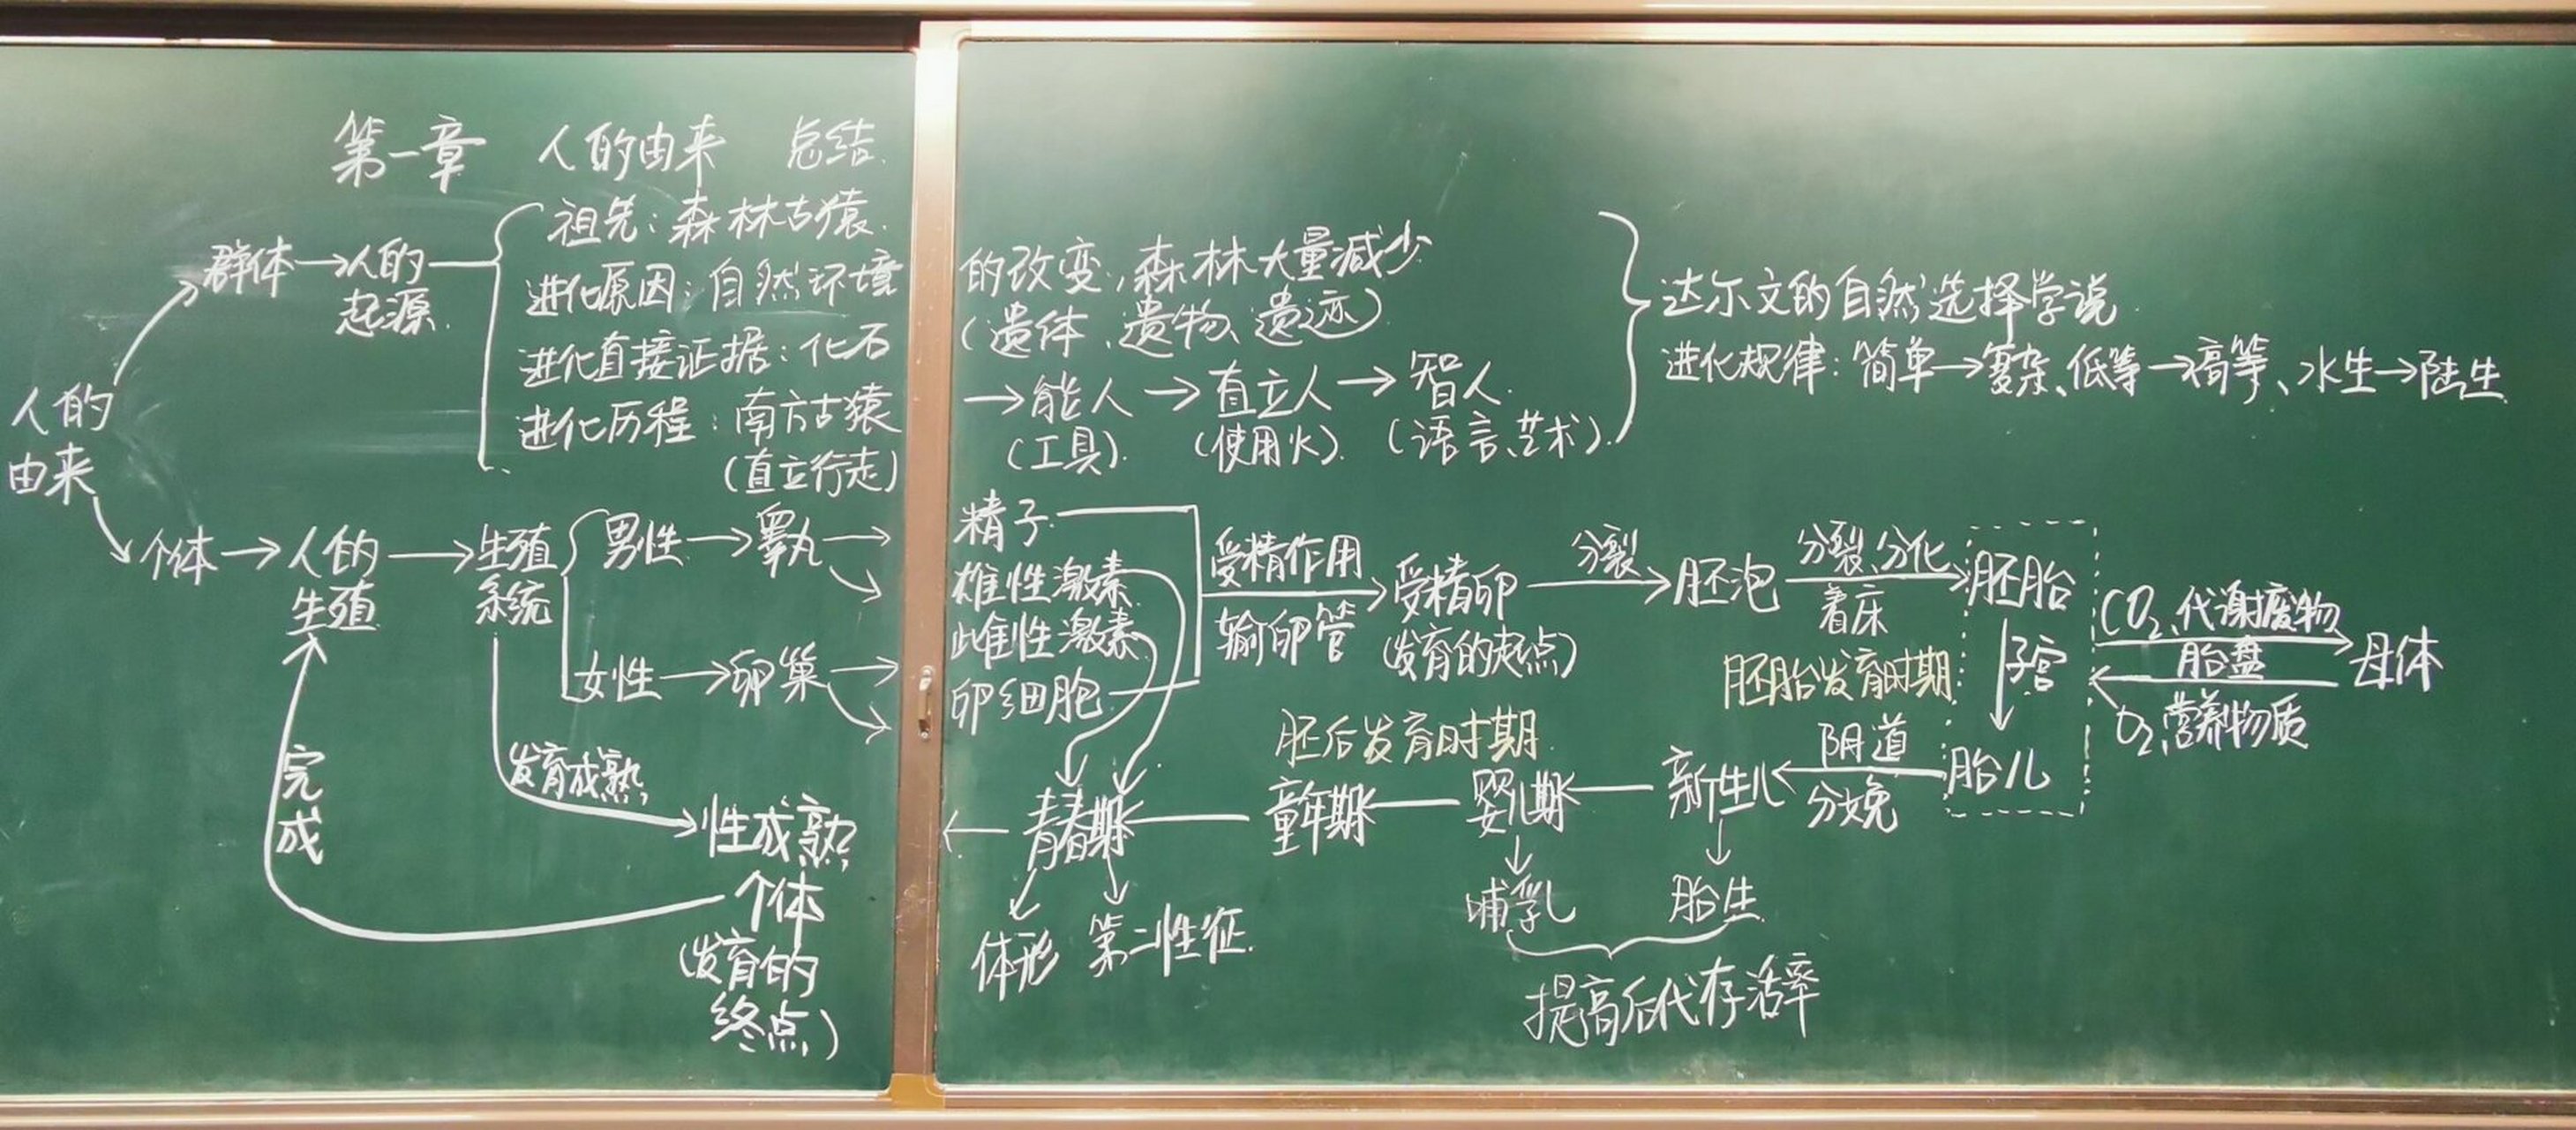 第一章 人的由来 总结
人的
由来
群体→人的
起源
祖先:森林古猿
进化原因:自然环境的改变,森林大量减少
进化直接证据:化石(遗体、遗物、遗迹)
进化历程:南方古猿→能人→直立人→智人
(直立行走) (工具) (使用火) (语言、艺术)
达尔文的自然选择学说
进化规律:简单→复杂、低等→高等、水生→陆生
个体→人的
生殖
→生殖
系统
男性→睾丸→
女性→卵巢→
精子
雄性激素
雌性激素
卵细胞
受精作用
输卵管
受精卵
(发育的起点)
分裂
胚泡
分裂、分化
着床
胚胎
子宫
胎儿
CO₂、代谢废物
胎盘
O₂、营养物质
母体
胚胎发育时期
阴道
分娩
新生儿
胎生
胚后发育时期
婴儿期
哺乳
提高后代存活率
童年期
青春期
体形 第二性征
发育成熟
性成熟
个体
(发育的
终点)
完成